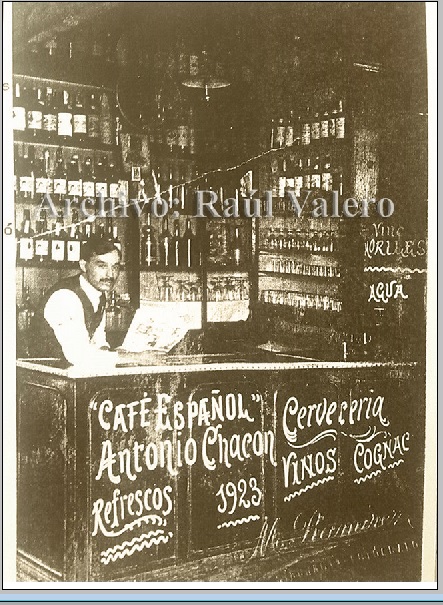 Archivo: Raúl Valero
MORILES
AGUA
"CAFÉ ESPAÑOL"
Antonio Chacon
Refrescos
1923
Cervecería
VINOS
COGNAC